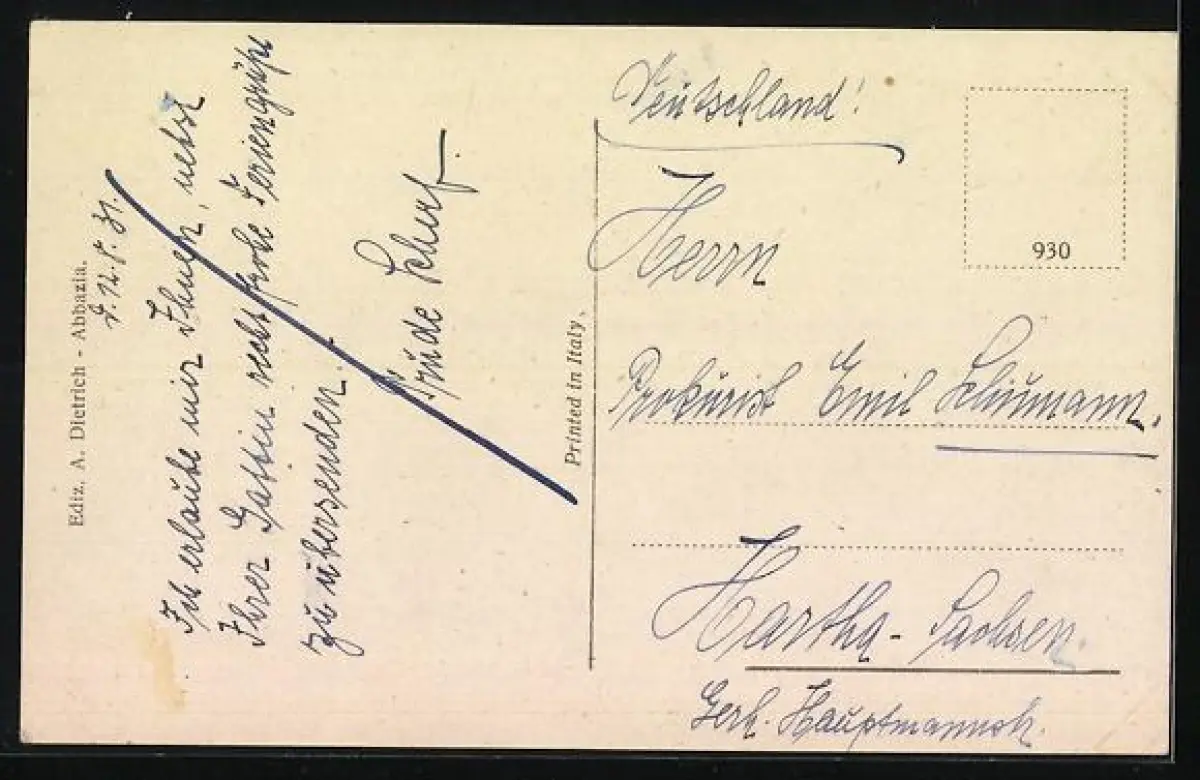 Ediz. A. Dietrich - Abbazia.
d. 12. 8. 31.
Ich erlaube mir Ihnen, nebst
Ihrer Gattin recht frohe Feriengrüße
zu übersenden.
Trüde Scherf.
Printed in Italy.
930
Deutschland!
Herrn
Prokurist Emil Schumann.
Hartha - Sachsen.
Gerh. Hauptmannstr.